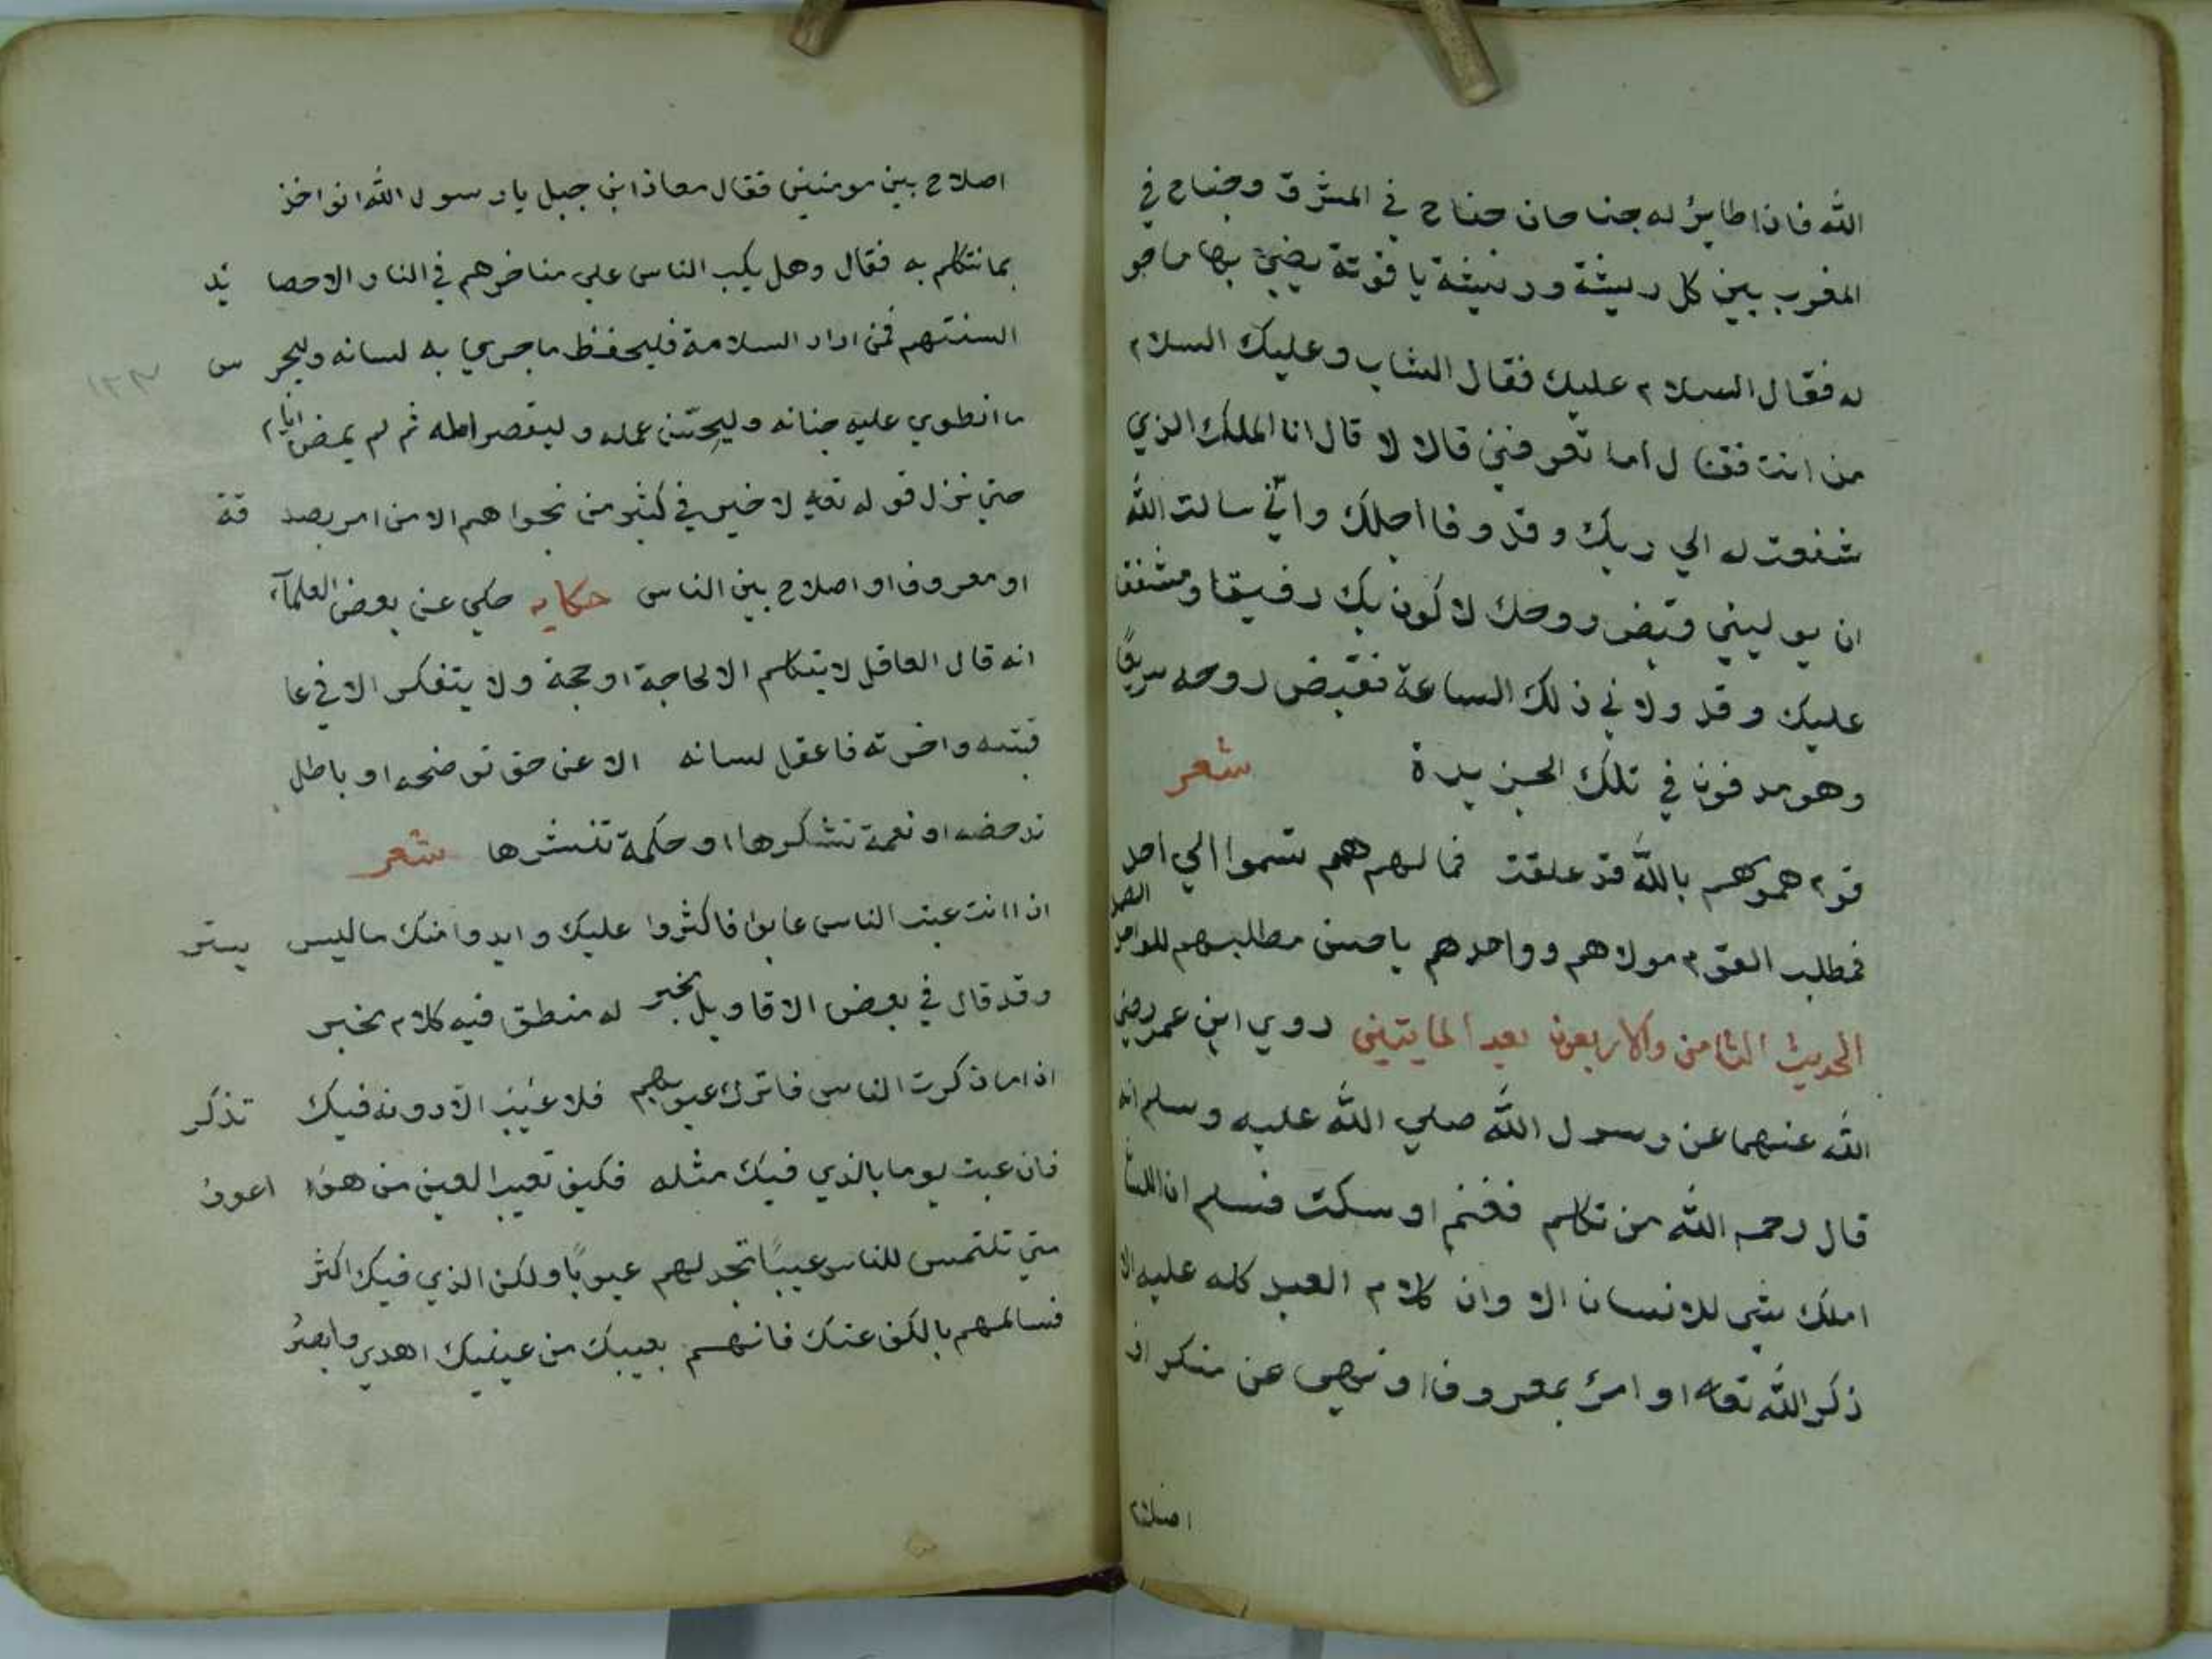 الله فاذا طاير له جناحان جناح في المشرق وجناح في
المغرب بين كل ريشة وريشة ياقوتة يضيئ بها ماهو
له فقال السلام عليك فقال الشاب وعليك السلام
من انت فقال اما تعرفني قالا لا قال انا الملك الذي
شفعت له الي ربك وقد وفا اجلك واني سالت الله
ان يوليني وقبض روحك لاكون بك رفيقا ومشفقا
عليك وقد ولاني ذلك الساعة فقبض روحه سريعًا
وهو مدفون في تلك الجزيرة شعر
قوم همومهم بالله قد علقت فما لهم همم تسموا الي احد
فمطلب القوم مولاهم وواحدهم ياحسن مطلبهم للواحد الصمد
الحديث الثامن والاربعون بعد المايتين روي ابن عمر رضي
الله عنهما عن رسول الله صلي الله عليه وسلم انه
قال رحم الله من تكلم فغنم او سكت فسلم ان اللسان
املك شي للانسان الا وان كلام العبد كله عليه الا
ذكر الله تعالى او امر بمعروف او نهي عن منكر او
اصلاح
اصلاح بين مومنين فقال معاذ ابن جبل يا رسول الله انواخذ
بما نتكلم به فقال وهل يكب الناس علي مناخرهم في النار الا حصا يد
السنتهم فمن اراد السلامة فليحفظ ما جري به لسانه وليحر س
ما انطوي عليه جنانه وليحسن عمله وليقصر امله ثم لم يمض ايام
حتي نزل قوله تعالى لا خير في كثير من نجواهم الا من امر بصد قة
او معروف او اصلاح بين الناس حكايه حكي عن بعض العلمآء
انه قال العاقل لا يتكلم الا لحاجة او حجة ولا يتفكر الا في عا
قبته واخرته فاعقل لسانه الا عن حق توضحه او باطل
تدحضه او نعمة تشكرها او حكمة تنشرها شعر
اذا انت عبت الناس عابوا فاكثروا عليك وابدوا منك ماليس يستر
وقد قال في بعض الاقاويل مخبر له منطق فيه كلام مخبر
اذا ما ذكرت الناس فاترك عيوبهم فلا عيب الا دونه فيك تذكر
فان عبت يوما بالذي فيك مثله فكيف تعيب العين من هوا اعور
متي تلتمس للناس عيبًا تجد لهم عيوبًا ولكن الذي فيك اكثر
فسالمهم بالكف عنك فانهم بعيبك من عينيك اهدي وابصر
١٢٣